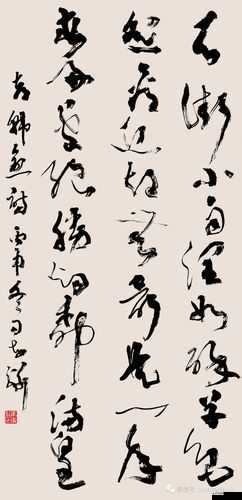 天街小雨润如酥草色
遥看近却无最是一年
春好处绝胜烟柳满皇
都韩愈诗丙申冬